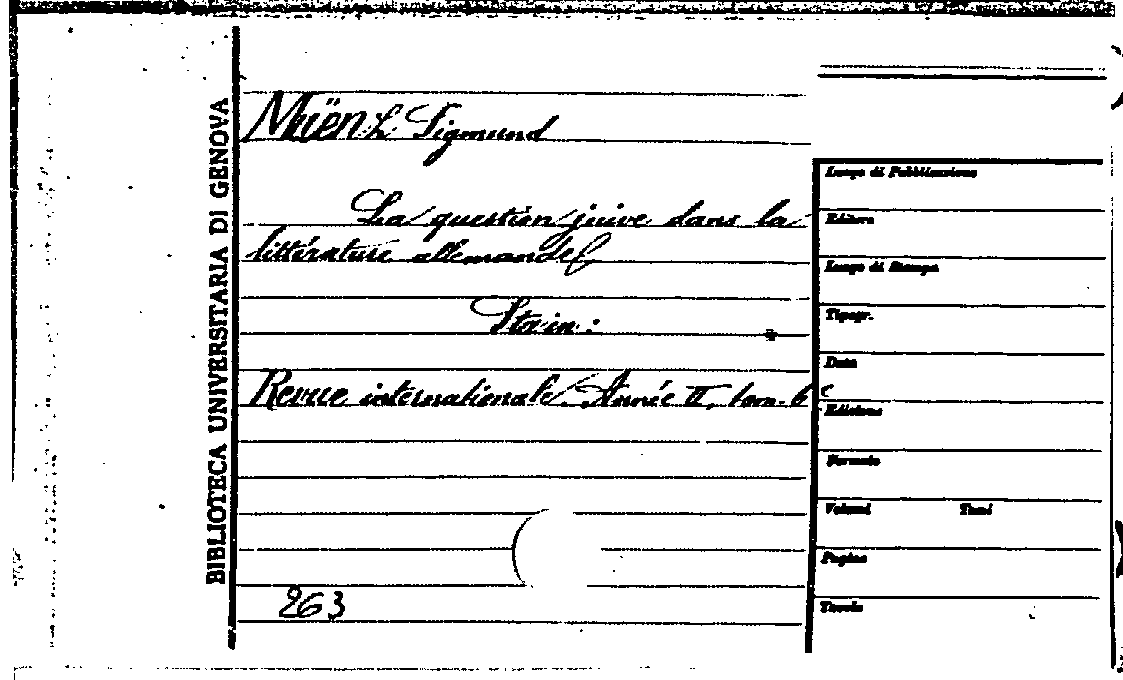 BIBLIOTECA UNIVERSITARIA DI GENOVA
Müenz Sigmund
La question juive dans la
littérature allemande
Sta in:
Revue internationale. Année II, tom. 6
263
Luogo di Pubblicazione
Editore
Luogo di Stampa
Tipogr.
Data
Edizione
Formato
Volumi Tomi
Pagine
Tavole